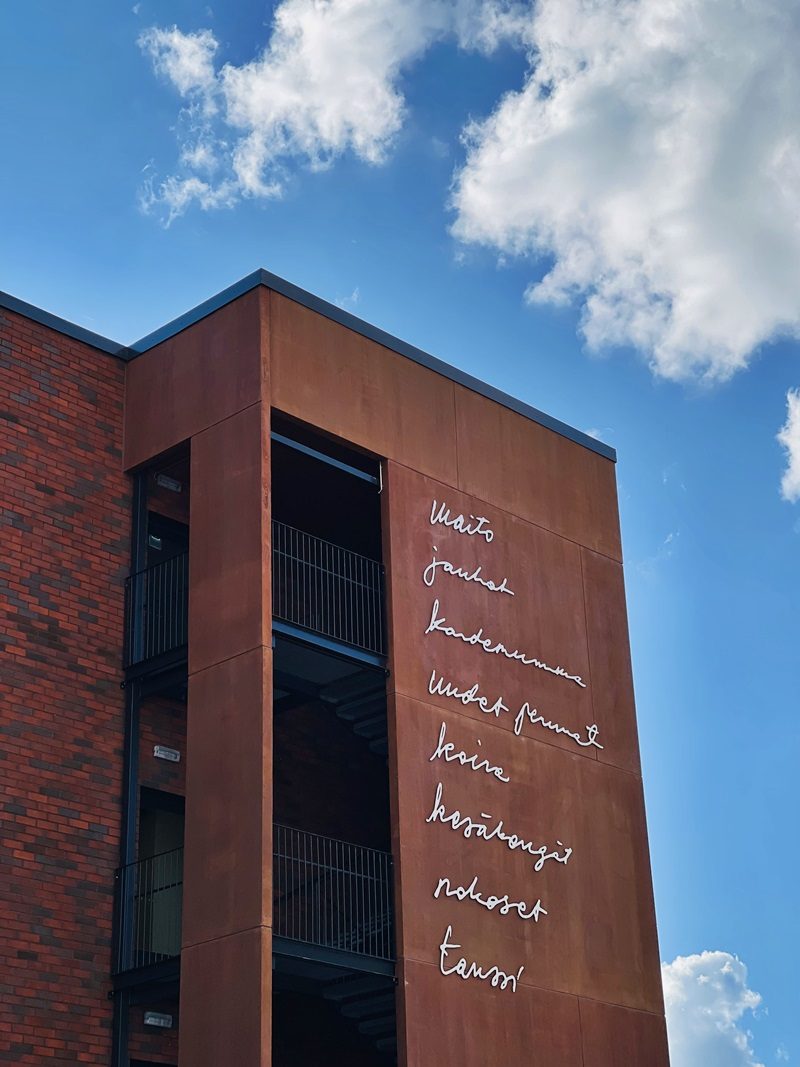 Maito
jauhot
kardemumma
Uudet perunat
koira
kesäkengät
nokoset
tanssi